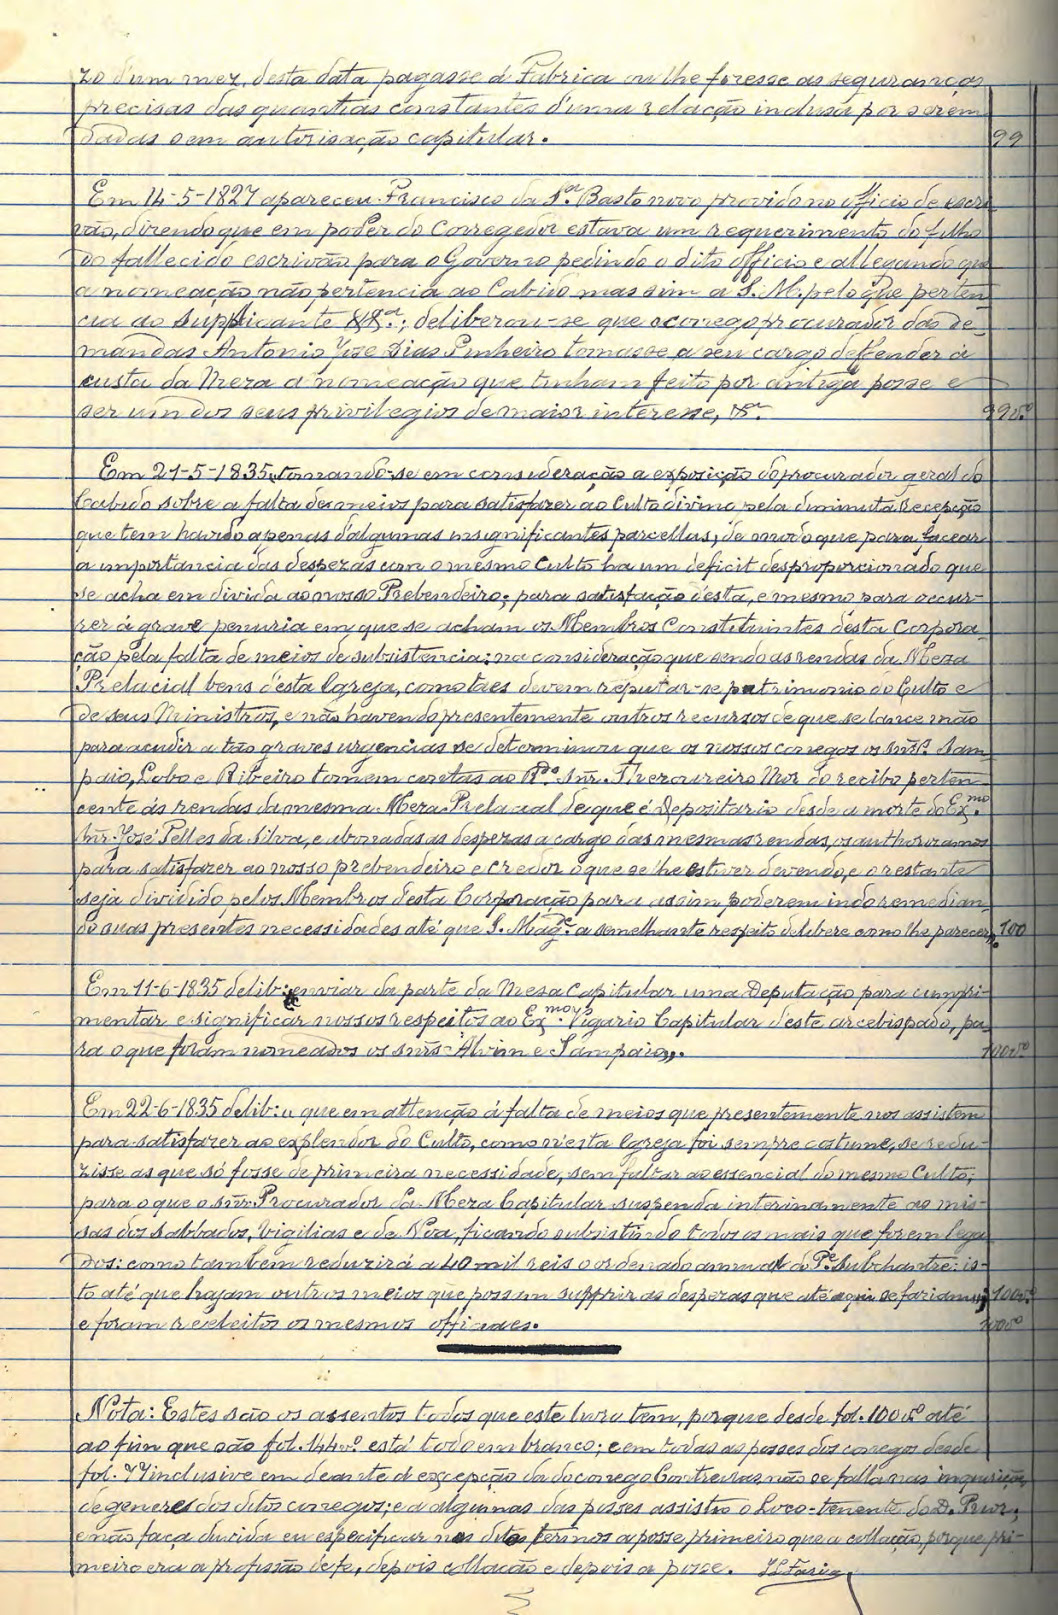 zo d'um mez, desta data pagasse á Fabrica ou lhe foresse as seguranças
precisas das quantias constantes d'uma relação inclusa por serem
dadas sem autorisação capitular. 99
Em 14-5-1827 apareceu Francisco da S.ª Basto novo provido no officio de escri-
vão, dizendo que em poder do Corregedor estava um requerimento do filho
do fallecido escrivão para o Governo pedindo o dito officio e allegando que
a nomeação não pertencia ao Cabido mas sim a S. M. pelo que perten-
cia ao supplicante &&.ª; deliberou-se que o conego procurador das de-
mandas Antonio Jose Dias Pinheiro tomasse a seu cargo deffender á
custa da Meza a nomeação que tinham feito por antiga posse e
ser um dos seus privilegios de maior interesse, &.ª 99v.º
Em 21-5-1835, tomando-se em consideração a exposição do procurador geral do
Cabido sobre a falta de meios para satisfazer ao Culto divino, pela diminuta recepção
que tem havido apenas d'algumas insignificantes parcellas, de modo que para facear
a importancia das despezas com o mesmo Culto ha um deficit desproporcionado que
se acha em divida ao nosso Prebendeiro; para satisfação desta, e mesmo para occur-
rer á grave penuria em que se acham os Membros Constituintes desta Corpora-
ção pela falta de meios de subsistencia; na consideração que sendo as rendas da Meza
Prelacial bens d'esta Igreja, como taes devem reputar-se patrimonio do Culto e
de seus Ministros, e não havendo presentemente outros recursos de que se lance mão
para acudir a tão graves urgencias se determinou que os nossos conegos os snr.s Sam-
paio, Lobo e Ribeiro tomem contas ao R.do Snr. Thezoureiro Mor do recibo perten-
cente ás rendas da mesma Meza Prelacial de que é Depositario desde a morte do Ex.mo
Snr. José Telles da Silva, e abonadas as despezas a cargo das mesmas rendas, os authorizamos
para satisfazer ao nosso prebendeiro e credor o que se lhe estiver devendo, e o restante
seja dividido pelos Membros desta Corporação para assim poderem indo remedian-
do suas presentes necessidades até que S. Mag.de a semelhante respeito delibere como lhe parecer. 100
Em 11-6-1835 delib: enviar da parte da Mesa Capitular uma Deputação para cumpri-
mentar e significar nossos respeitos ao Ex.mo Vigario Capitular d'este arcebispado, pa-
ra o que foram nomeados os snrs Alvim e Sampaio,. 100v.º
Em 22-6-1835 delib: u que em attenção á falta de meios que presentemente nos assistem
para satisfazer ao explendor do Culto, como n'esta Igreja foi sempre costume, se redu-
zisse as que só fosse de primeira necessidade, sem faltar ao essencial do mesmo Culto;
para o que o snr. Procurador da Meza Capitular suspenda interinamente as mis-
sas dos Sabbados, Vigilias e de Noa, ficando subsistindo todos os mais que forem lega-
dos: como tambem reduzirá a 40 mil reis o ordenado annual do P.e Subchantre: is-
to até que hajam outros meios que possam supprir as despezas que até aqui se fariam; 100v.º
e foram reeleitos os mesmos officiaes. 100v.º
Nota: Estes são os assentos todos que este livro tem, porque desde fol. 100v.º até
ao fim que são fol. 144v.º está todo em branco; e em todas as posses dos conegos desde
fol. 77 inclusive em deante á excepção da do conego Contreiras não se falla nas inquirições
de genere dos ditos conegos; e a algumas das posses assistiu o Loco-tenente do D. Prior;
e não faça duvida eu especificar nos ditos termos a posse primeiro que a collação, porque pri-
meiro era a profissão de fe, depois collação e depois a posse. JLFaria